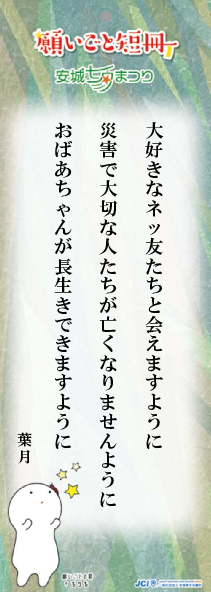 願いごと短冊
安城七夕まつり
大好きなネッ友たちと会えますように
災害で大切な人たちが亡くなりませんように
おばあちゃんが長生きできますように
葉月
JCI